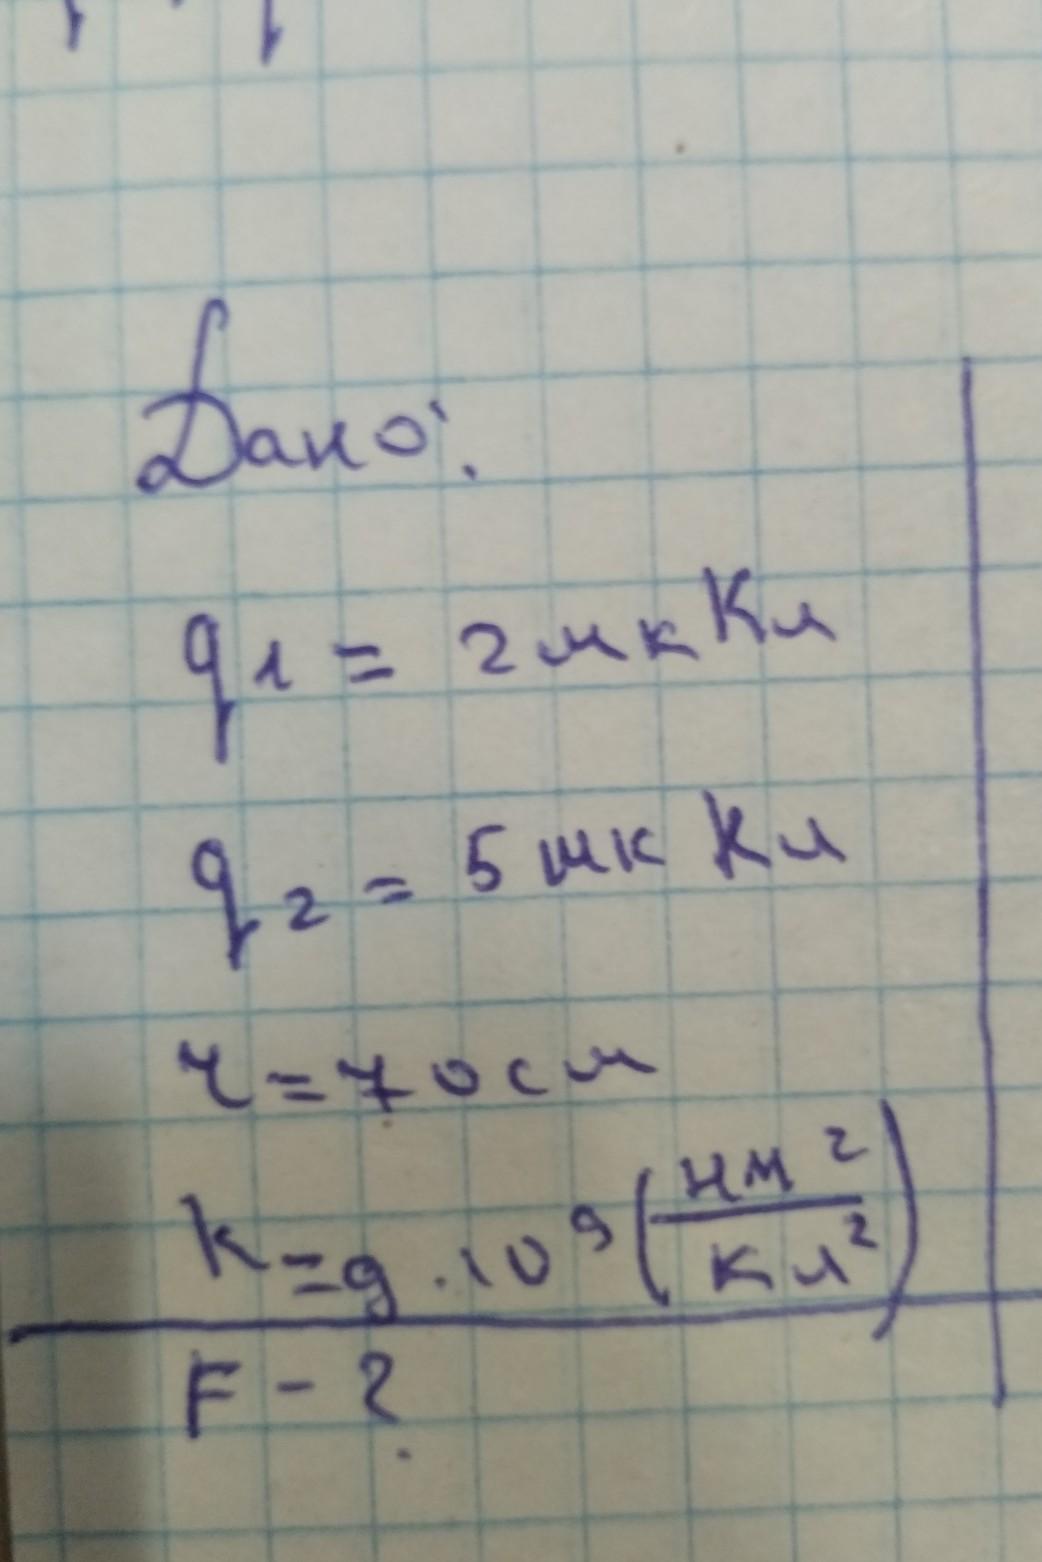 Дано:
q1 = 2 мк Кл
q2 = 5 мк Кл
r = 70 см
k = 9 · 10⁹ (нм²/Кл²)
F - ?